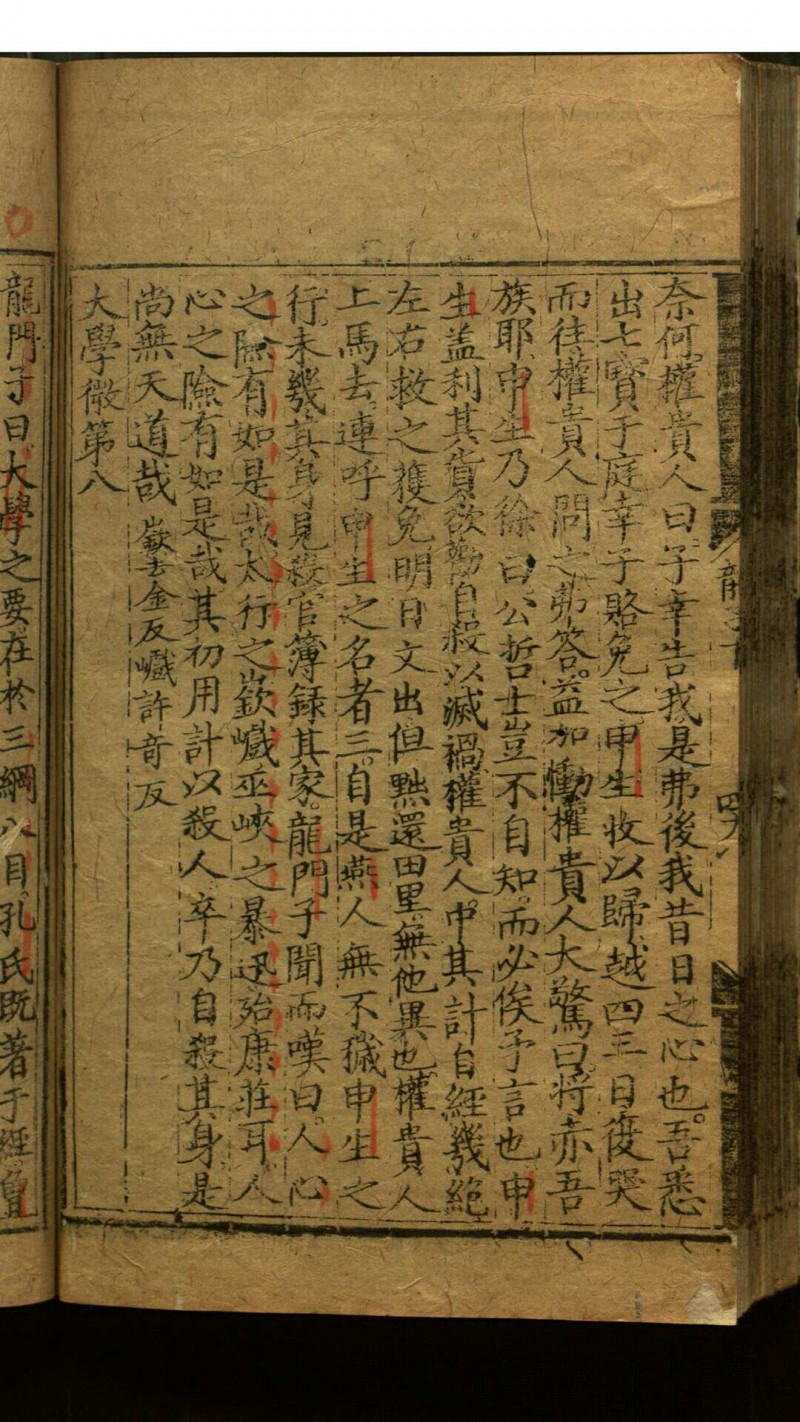 奈何權貴人曰子幸告我是弗後我昔日之心也吾悉
出七寶于庭幸子賂免之申生收以歸越四三日復哭
而往權貴人問之弗答益加慟權貴人大驚曰將赤吾
族耶申生乃徐曰公哲士豈不自知而必俟予言也申
生蓋利其貲欲勸自殺以滅禍權貴人中其計自經幾絕
左右救之獲免明日文出但黜還田里無他異也權貴人
上馬去連呼申生之名者三自是燕人無不穢申生之
行未幾其身見殺官簿錄其家龍門子聞而嘆曰人心
之險有如是哉太行之嶔巇巫峽之暴迅殆康莊耳人
心之險有如是哉其初用計以殺人卒乃自殺其身是
尚無天道哉 嶔去金反巇許奇反
大學微第八
龍門子曰大學之要在於三綱八目孔氏既著于經曾